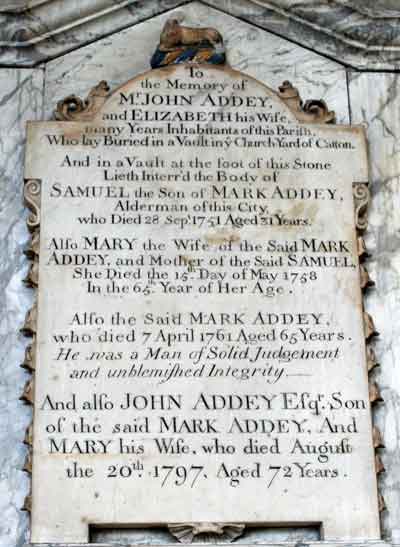 To
the Memory of
Mr. JOHN ADDEY,
and ELIZABETH his Wife,
many Years Inhabitants of this Parish,
Who lay Buried in a Vault in ye Church Yard of Catton.
And in a Vault at the foot of this Stone
Lieth Interr'd the Body of
SAMUEL the Son of MARK ADDEY,
Alderman of this City,
who Died 28 Sept. 1751 Aged 31 Years.
Also MARY the Wife of the Said MARK
ADDEY, and Mother of the Said SAMUEL,
She Died the 15th. Day of May 1758
In the 65th. Year of Her Age.
Also the Said Mr. MARK ADDEY,
who died 7 April 1761 Aged 65 Years.
He was a Man of Solid Judgement
and unblemished Integrity.
And also JOHN ADDEY Esqr. Son
of the said MARK ADDEY, And
MARY his Wife, who died August
the 20th. 1797, Aged 72 Years.